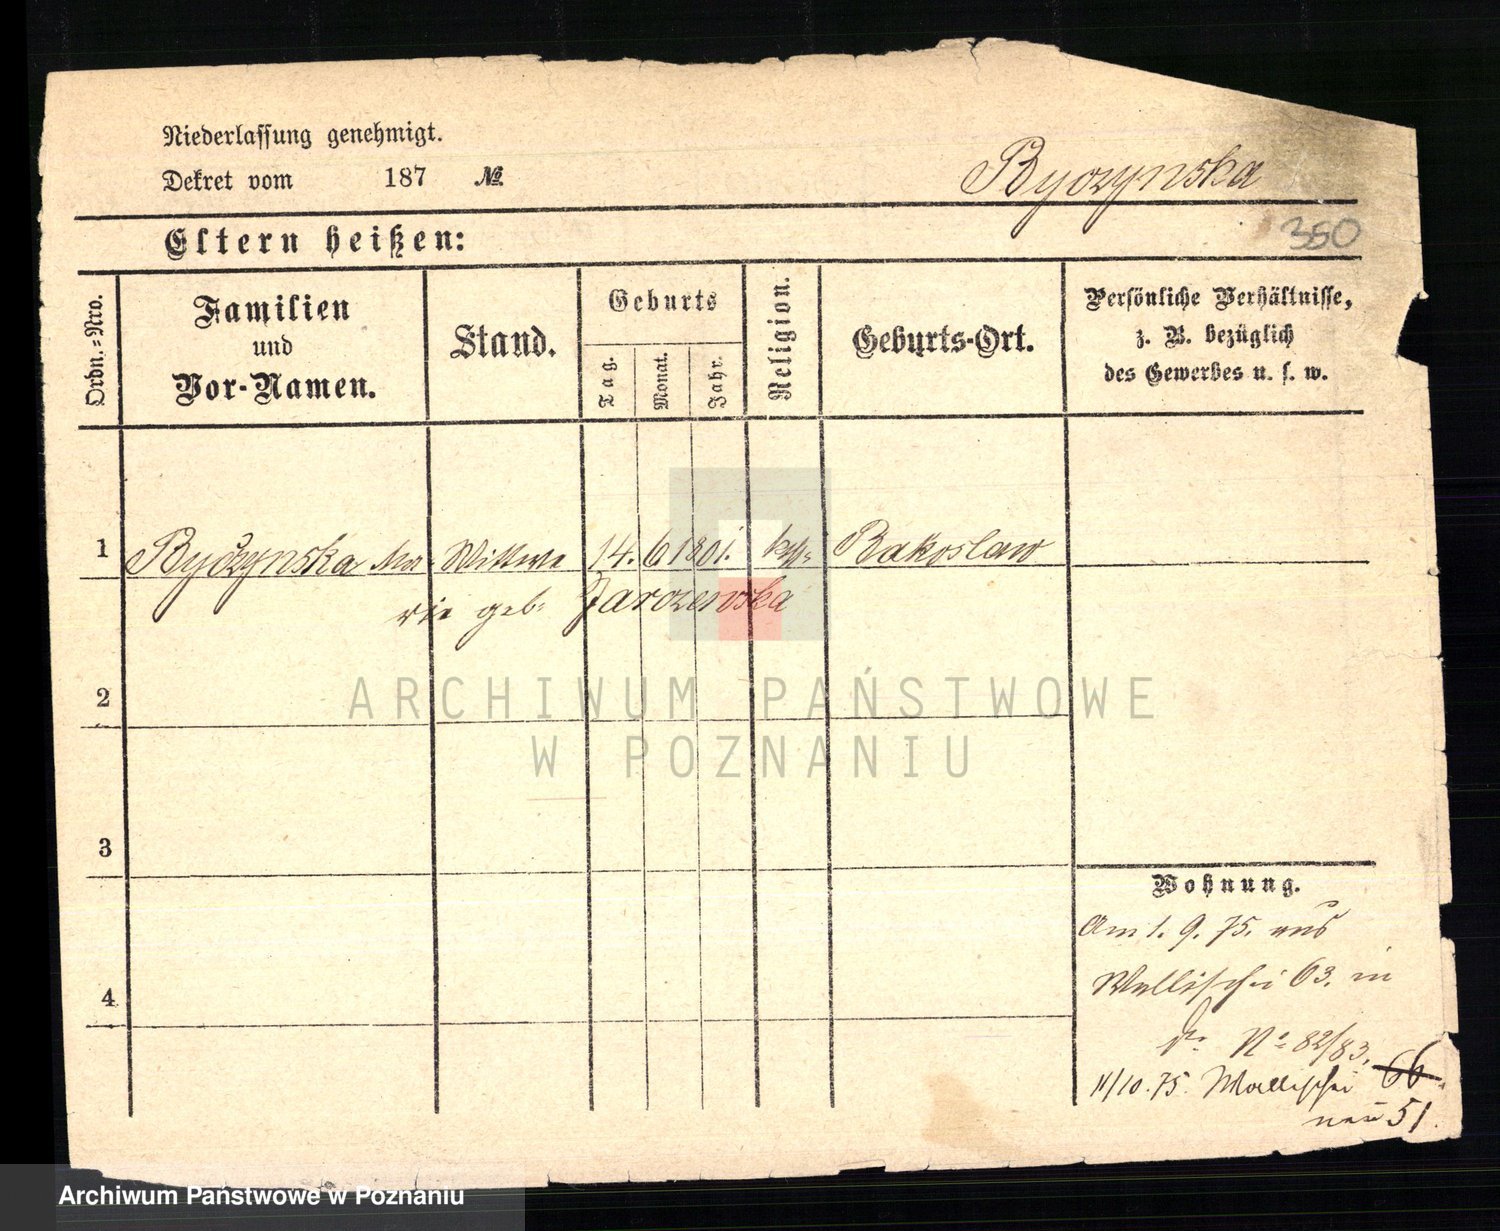 Niederlassung genehmigt.
Dekret vom 187 №
Byczynska
350
Eltern heißen:
Ordn.=Nro.
Familien
und
Vor-Namen.
Stand.
Geburts
Tag.
Monat.
Jahr.
Religion.
Geburts-Ort.
Persönliche Verhältnisse,
z. B. bezüglich
des Gewerbes u. s. w.
1 Byczynska Ma- Wittwe 14. 6 1801. kth: Bakoslaw
rie geb: Jarozewska
2
ARCHIWUM PAŃSTWOWE
W POZNANIU
3
Wohnung.
Am 1. 9. 75. aus
Wallischei 63. in
do No 82/83.
4
11/10. 75. Wallischei 66.
neu 51.
Archiwum Państwowe w Poznaniu